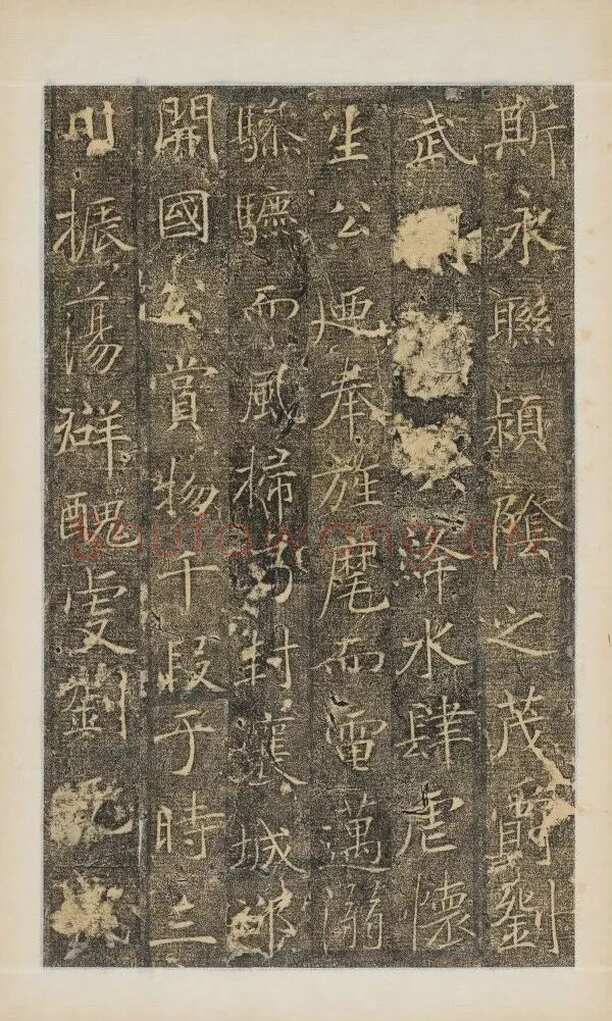 斯永聯頴陰之茂爵劉
武絳水肆虐懷
生公廼奉旌麾而電邁
驂驪而風掃乃封襄城郡
開國公賞物千段于時三
川振蕩群醜虔劉